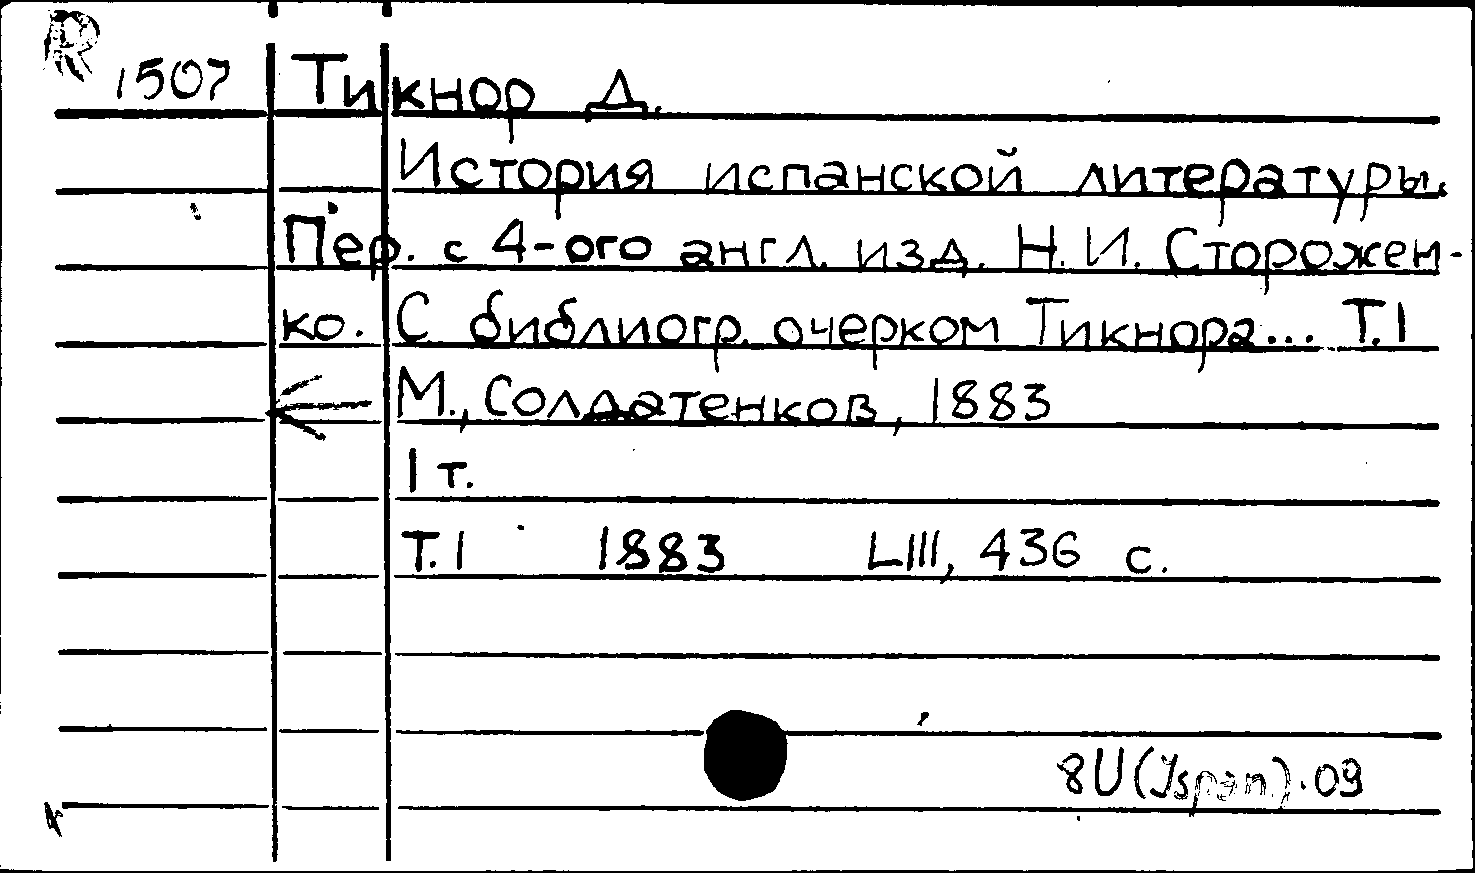 R
1507 Тикнор Д.
История испанской литературы.
Пер. с 4-ого англ. изд. Н. И. Сторожен-
ко. С библиогр. очерком Тикнора... Т. I
М., Солдатенков, 1883
1 т.
Т. I 1883 LIII, 436 с.
8U(Jspan).09